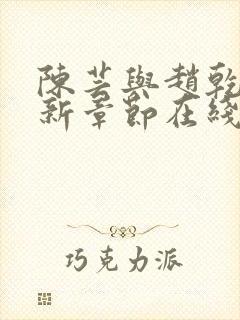 陳芸與趙乾
新章節在綫
巧克力派